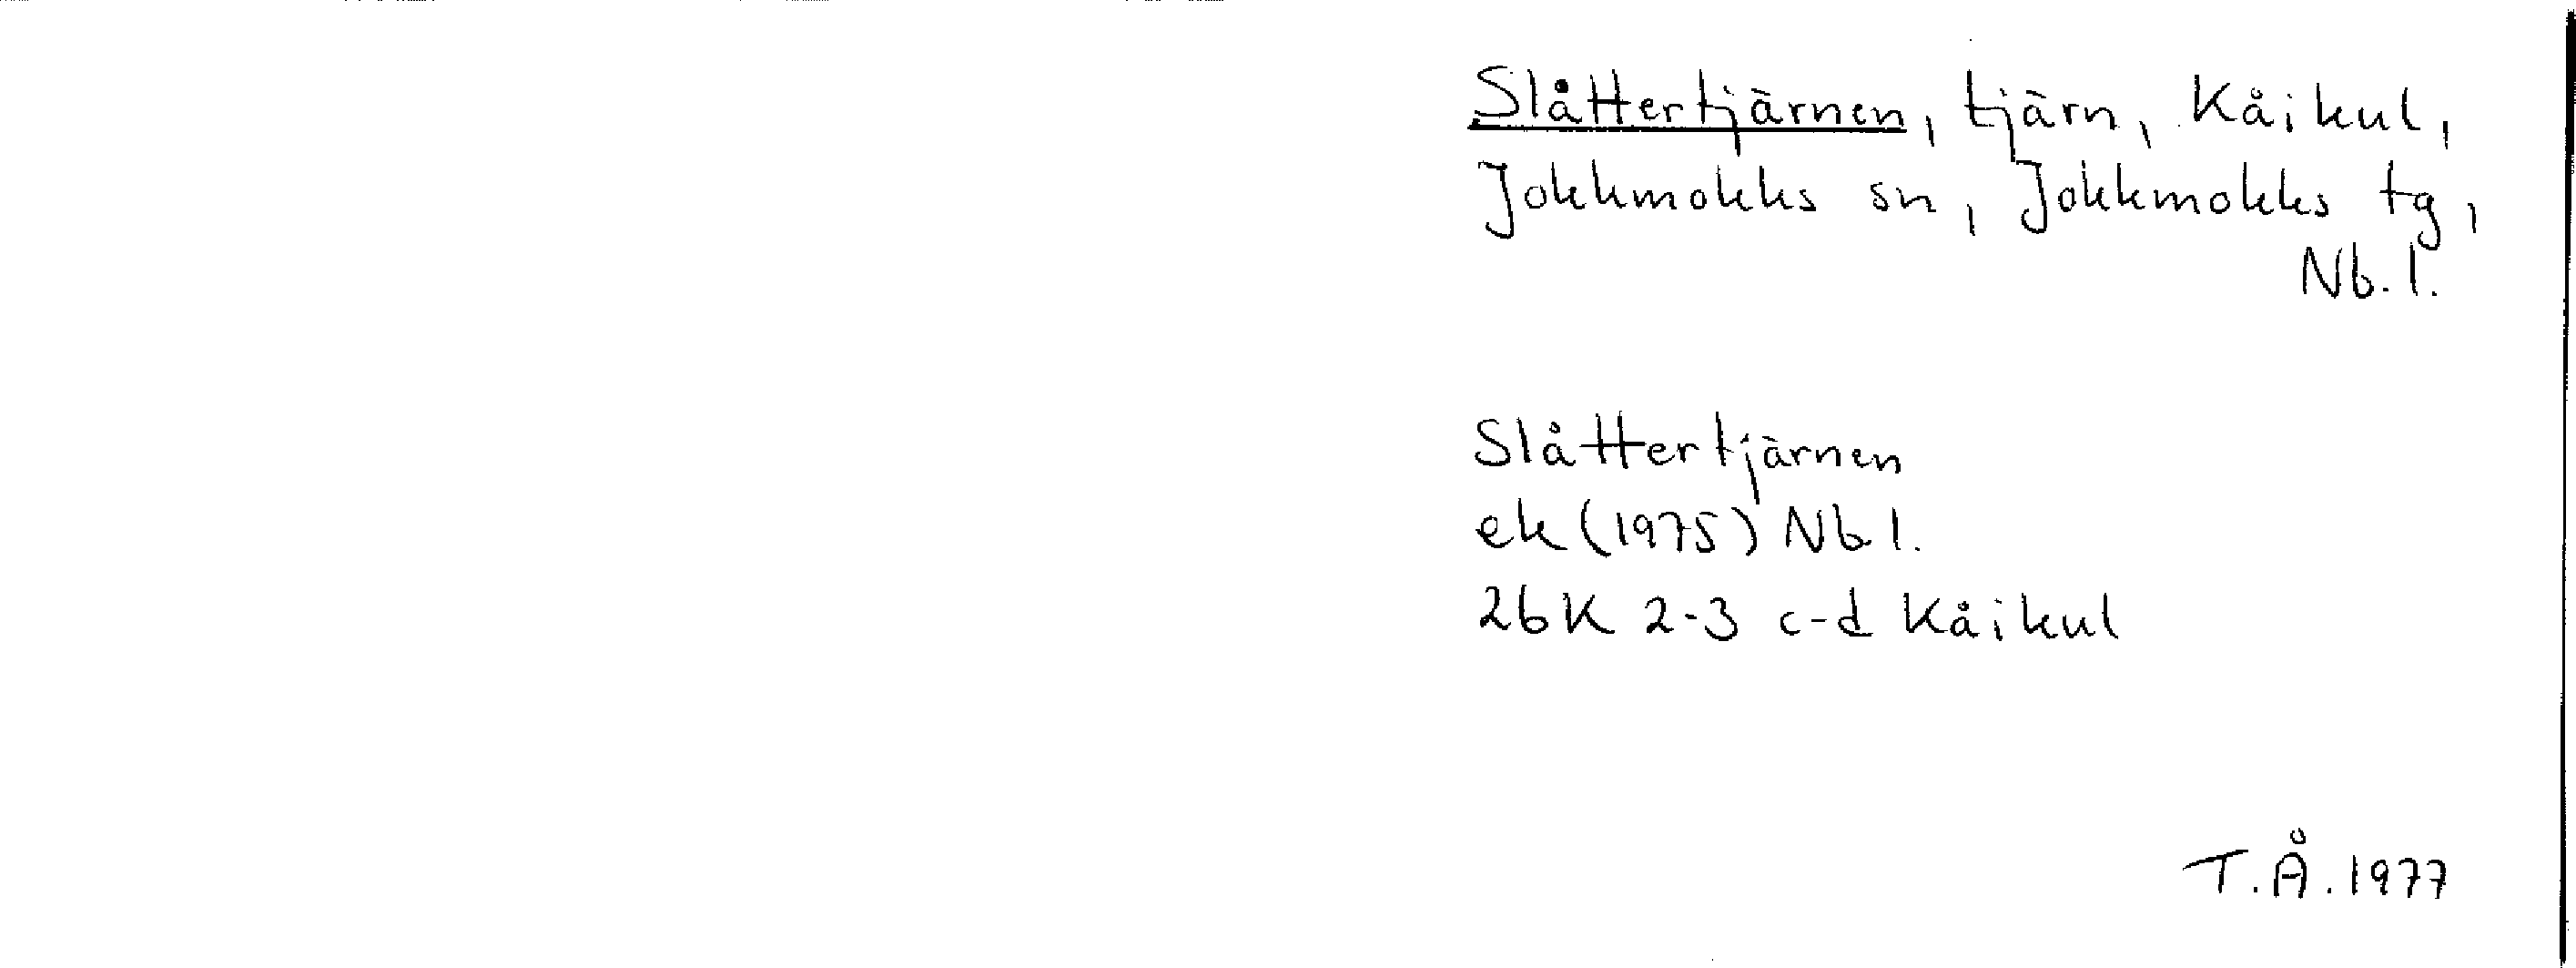 Slåttertjärnen, tjärn, Kåikul,
Jokkmokks sn, Jokkmokks tg,
Nb. l.
Slåttertjärnen
ek (1975) Nb l.
26K 2-3 c-d Kåikul
T. Å. 1977